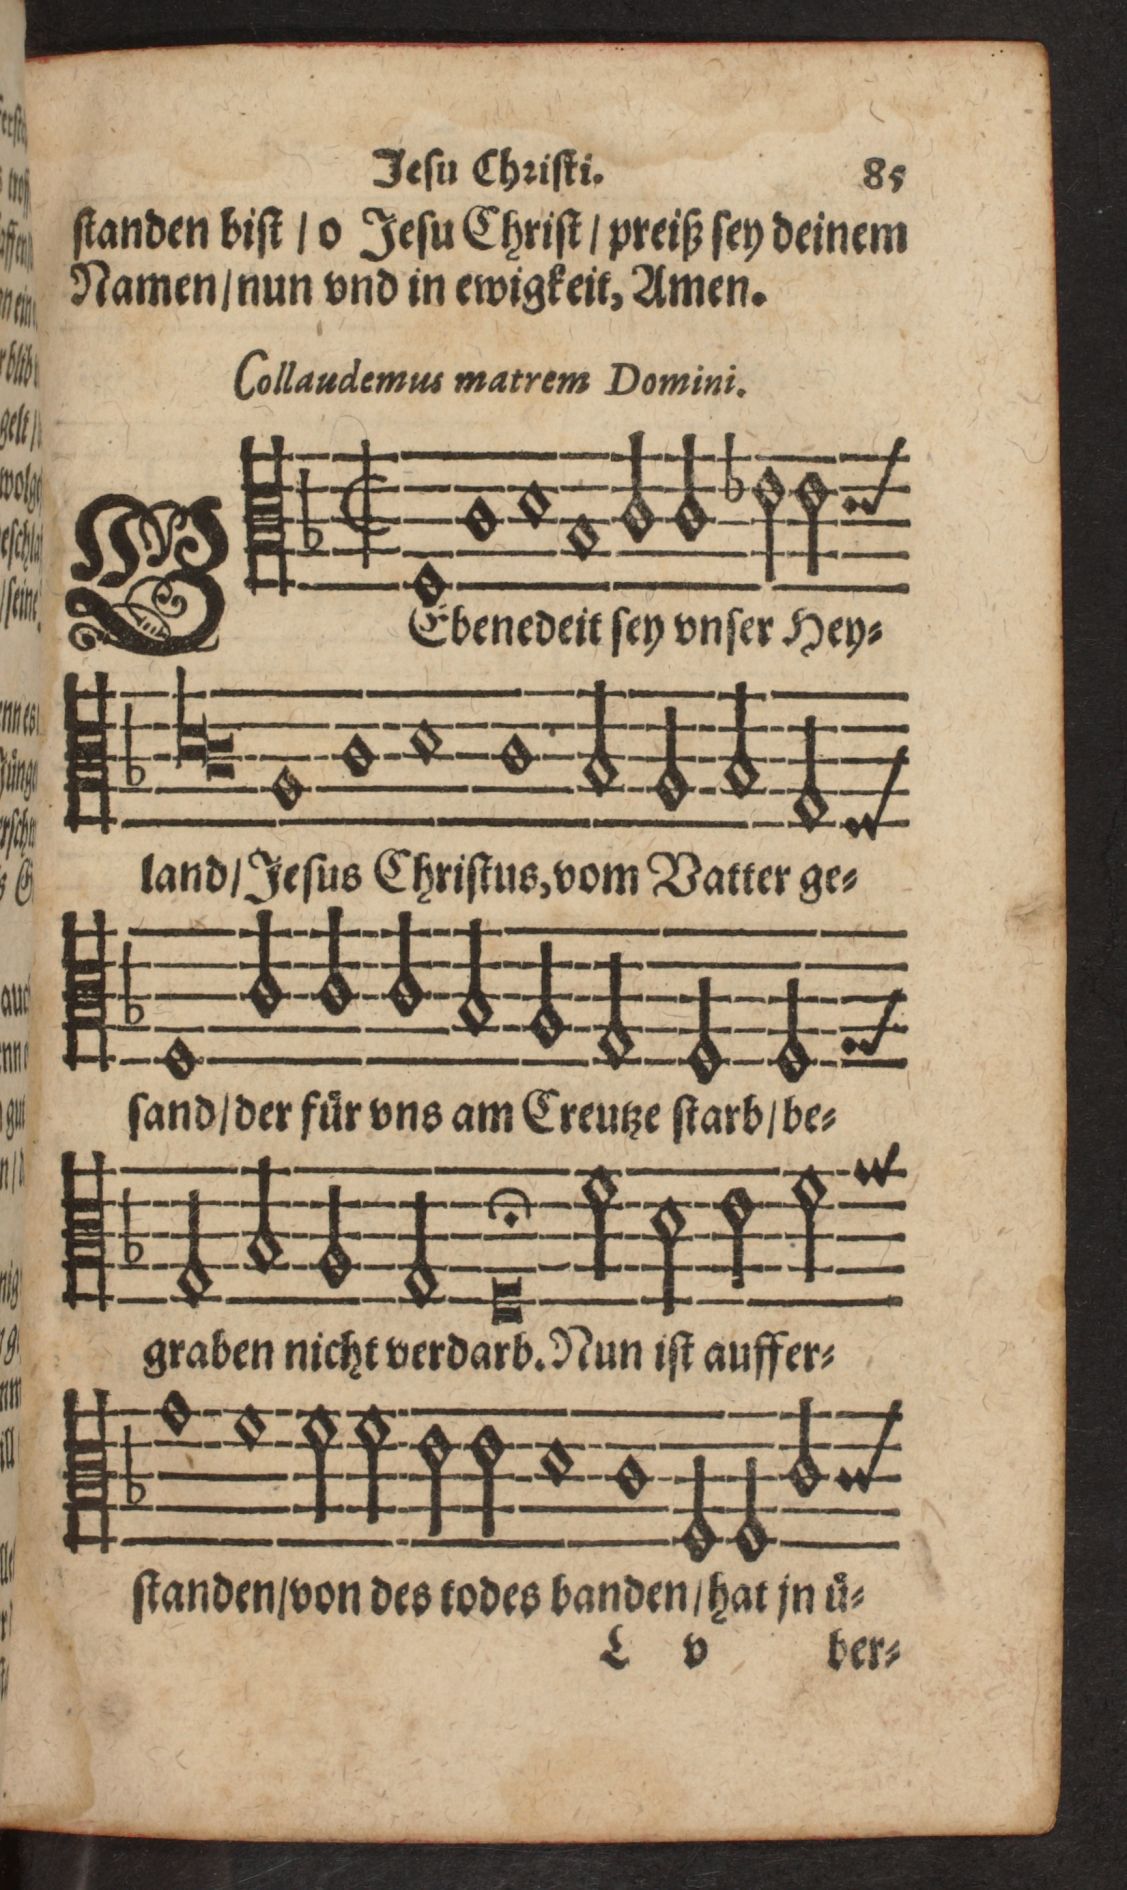 Jesu Christi. 85
standen bist / o Jesu Christ / preiß sey deinem
Namen / nun vnd in ewigkeit, Amen.
Collaudemus matrem Domini.
GEbenedeit sey vnser Hey⸗
land / Jesus Christus, vom Vatter ge⸗
sand / der fuͤr vns am Creutze starb / be⸗
graben nicht verdarb. Nun ist auffer⸗
standen / von des todes banden / hat jn uͤ⸗
L v ber⸗